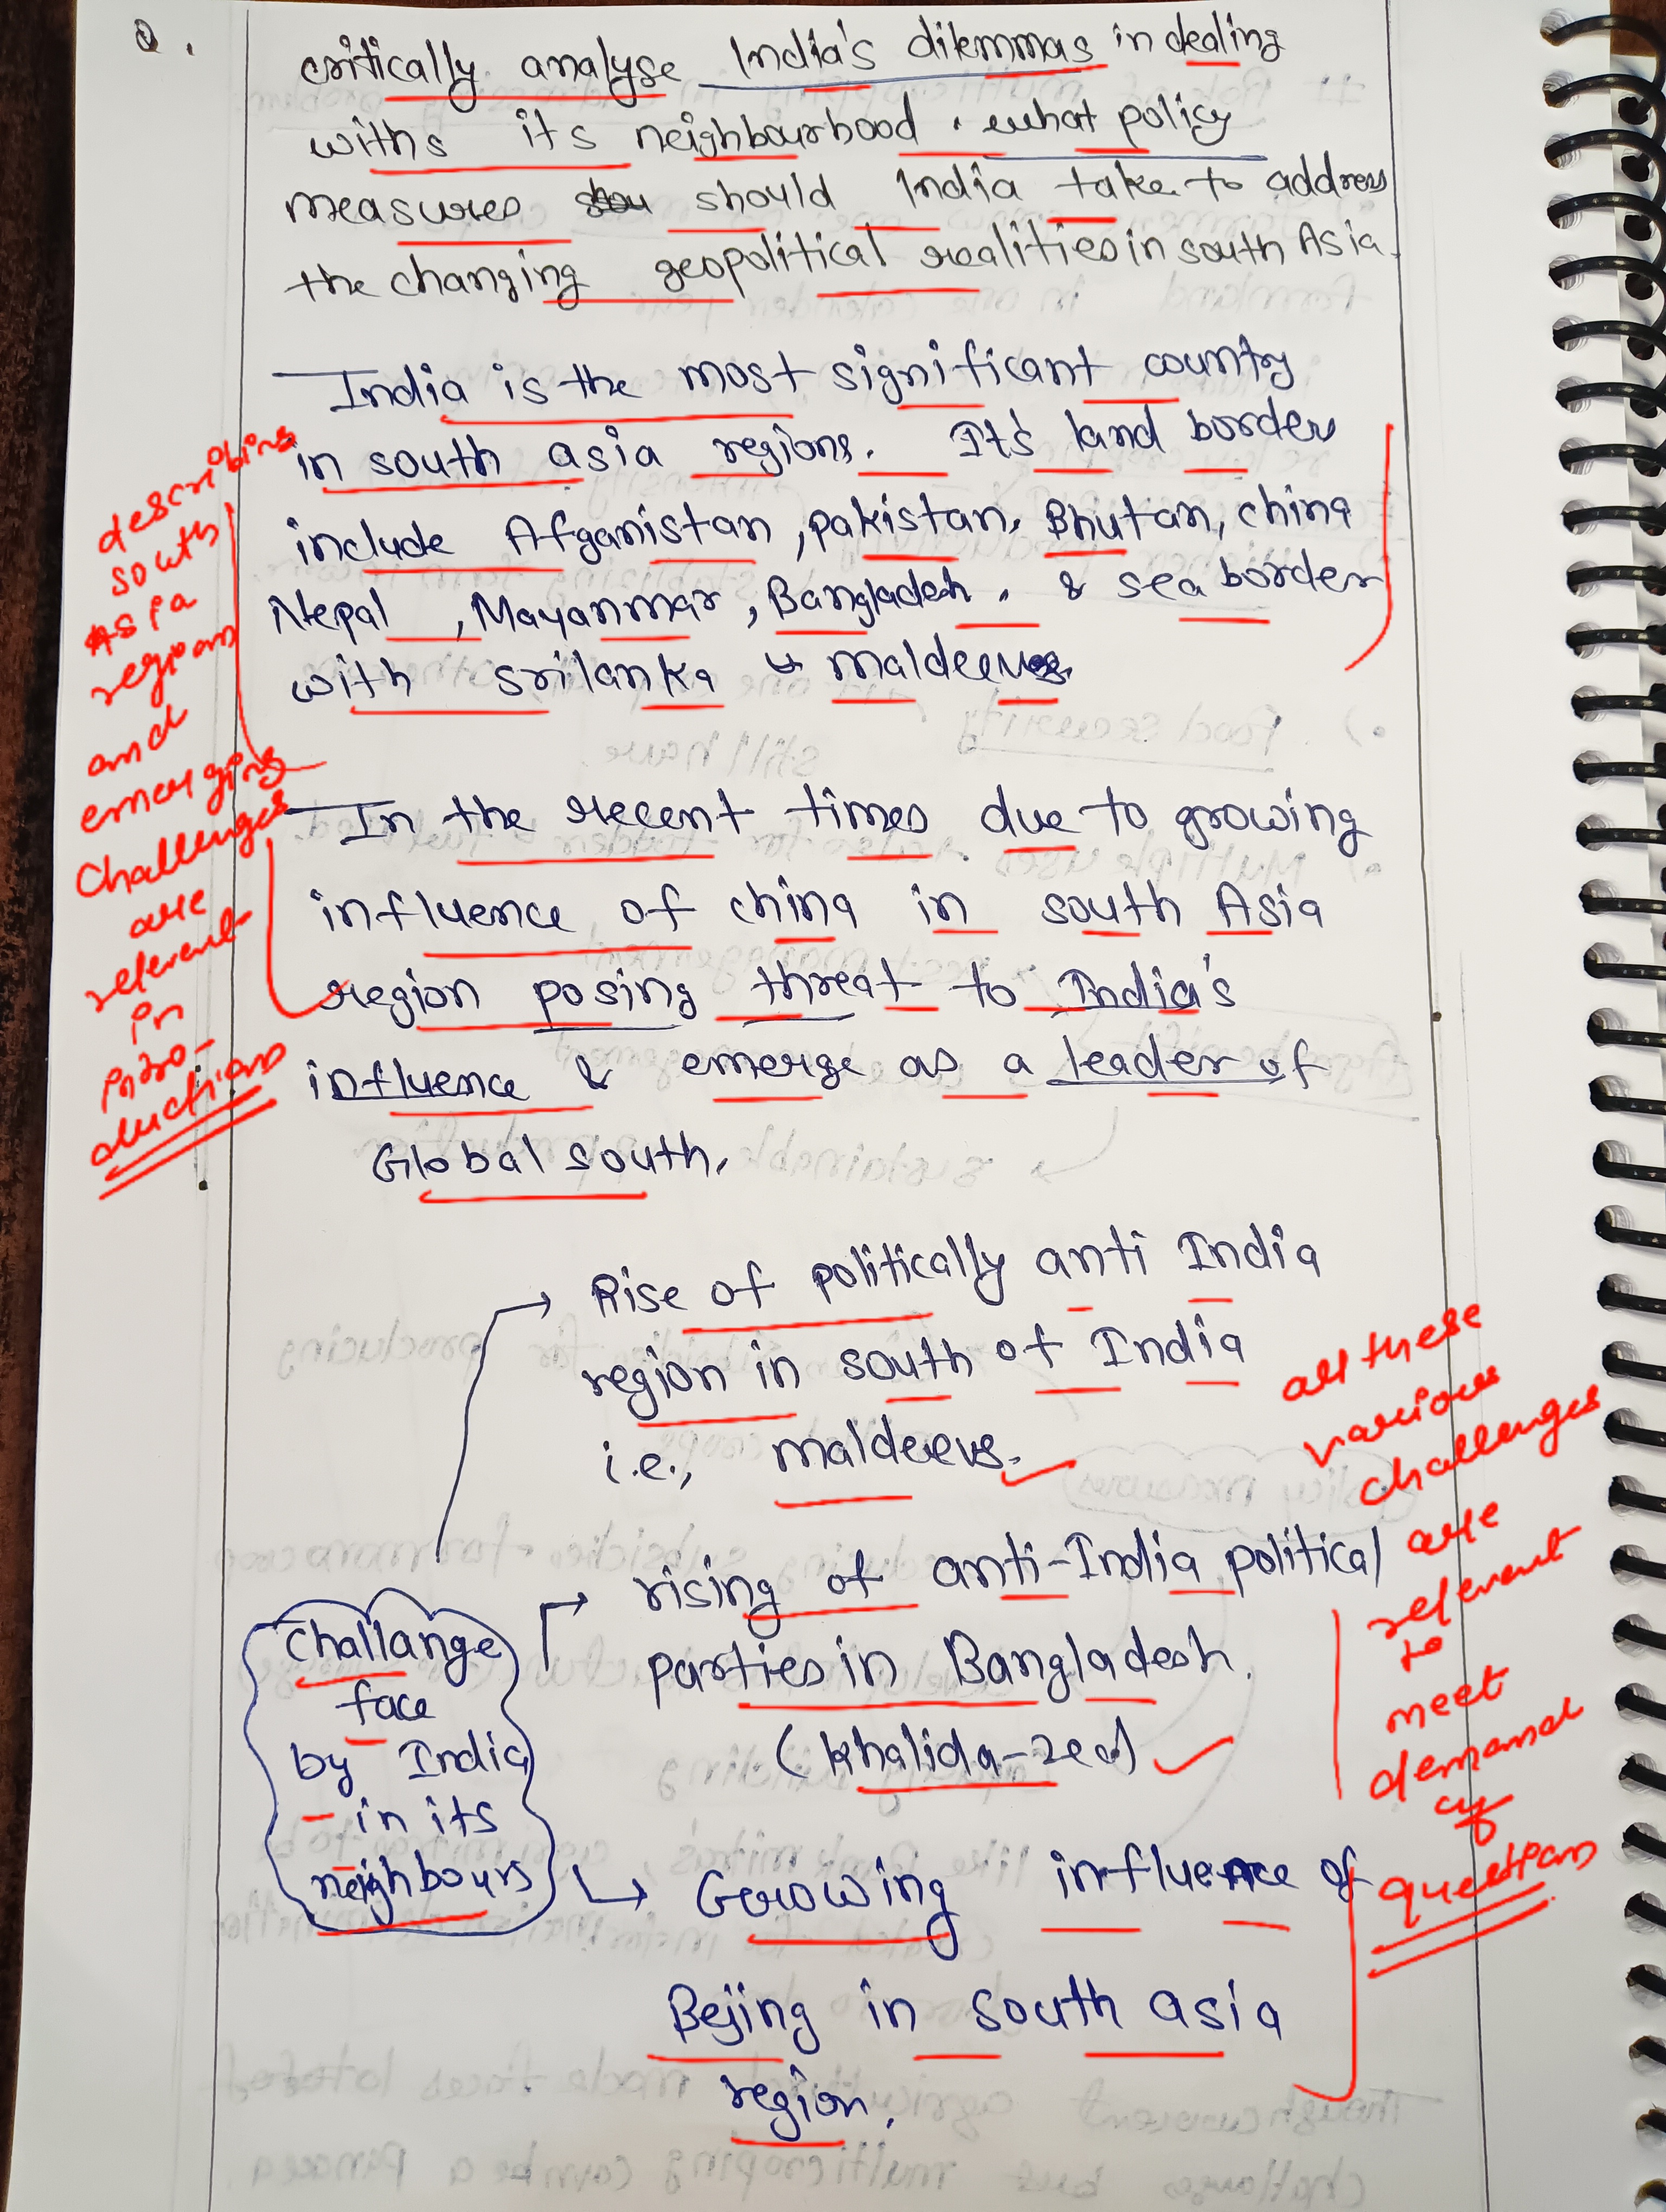 Q.
critically analyse India's dilemmas in dealing
withs its neighbourhood. what policy
measures should India take to address
the changing geopolitical realities in south Asia.
India is the most significant country
in south asia regions. It's land border
include Afganistan, pakistan, Bhutan, china
Nepal, Mayanmar, Bangladesh, & sea border
with srilanka & maldeeves
describing
south
Asia
region
and
emerging
challenges
are
relevent
in
intro-
ductions
In the recent times due to growing
influence of china in south Asia
region posing threat to India's
influence & emerge as a leader of
Global south.
Rise of politically anti India
region in south of India
i.e., maldeevs.
challange
face
by India
in its
neighbours
rising of anti-India political
parties in Bangladesh.
(khalida-zea)
Growing influence of
Bejing in south asia
region.
all these
various
challenges
are
relevent
to
meet
demand
of
question